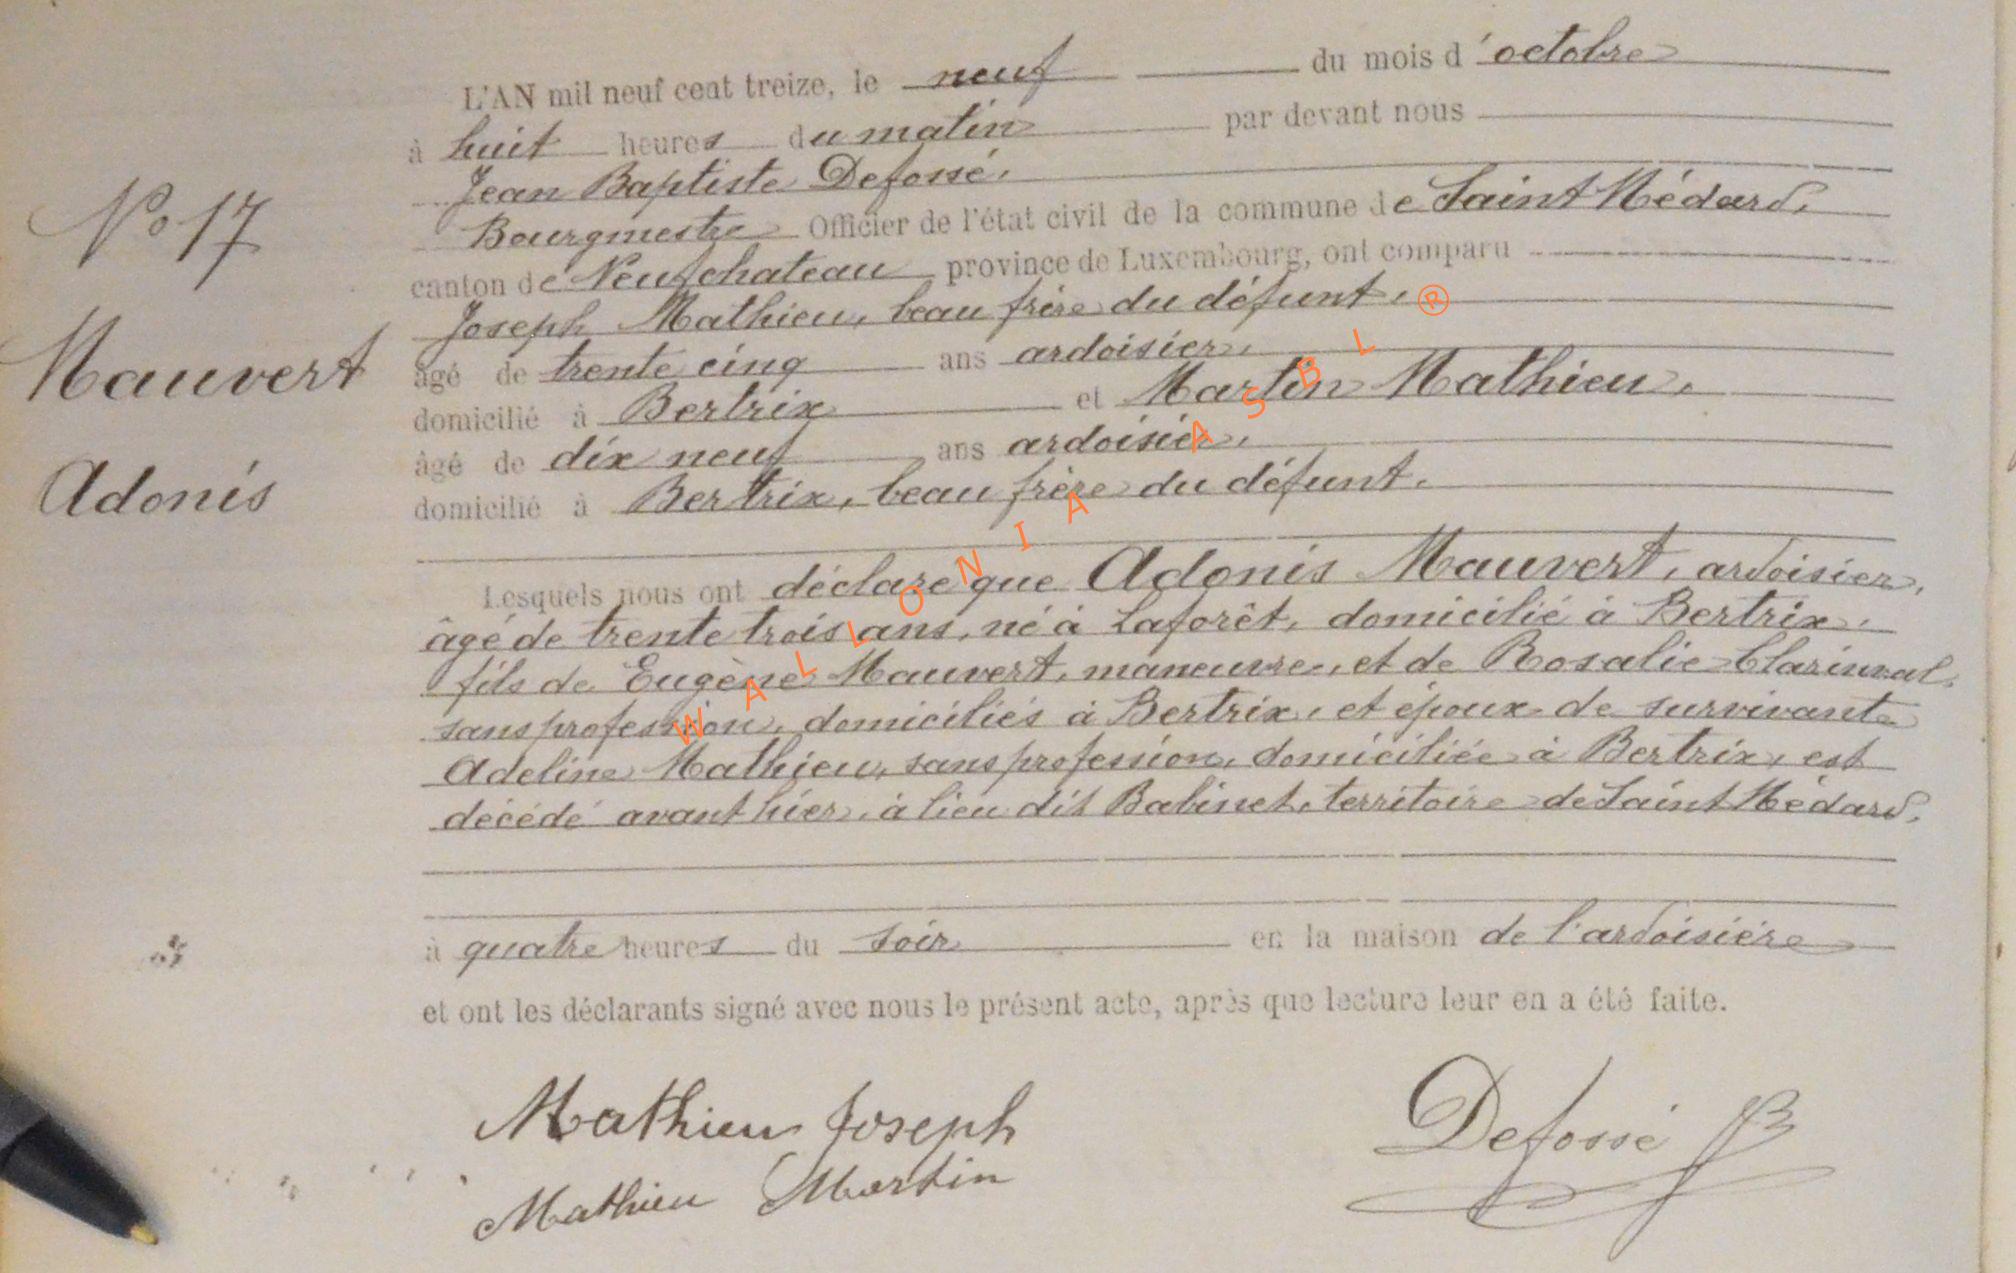 L'AN mil neuf cent treize, le neuf du mois d'octobre
à huit heures du matin par devant nous
Jean Baptiste Defossé,
Bourgmestre Officier de l'état civil de la commune de Saint Médard,
canton de Neufchateau province de Luxembourg, ont comparu
Joseph Mathieu, beau frère du défunt,
âgé de trente cinq ans ardoisier,
domicilié à Bertrix et Martin Mathieu,
âgé de dix neuf ans ardoisier,
domicilié à Bertrix, beau frère du défunt.
N° 17
Mauvert
Adonis
Lesquels nous ont déclare que Adonis Mauvert, ardoisier,
âgé de trente trois ans, né à Laforêt, domicilié à Bertrix,
fils de Eugène Mauvert, maneuvre, et de Rosalie Clarinval,
sans profession, domiciliés à Bertrix, et époux de survivante
Adeline Mathieu, sans profession, domiciliée à Bertrix, est
décédé avant hier, à lieu dit Babinet, territoire de Saint Médard,
à quatre heures du soir en la maison de l'ardoisière
et ont les déclarants signé avec nous le présent acte, après que lecture leur en a été faite.
Mathieu Joseph
Mathieu Martin
Defossé JB
WALLONIA ASBL ®